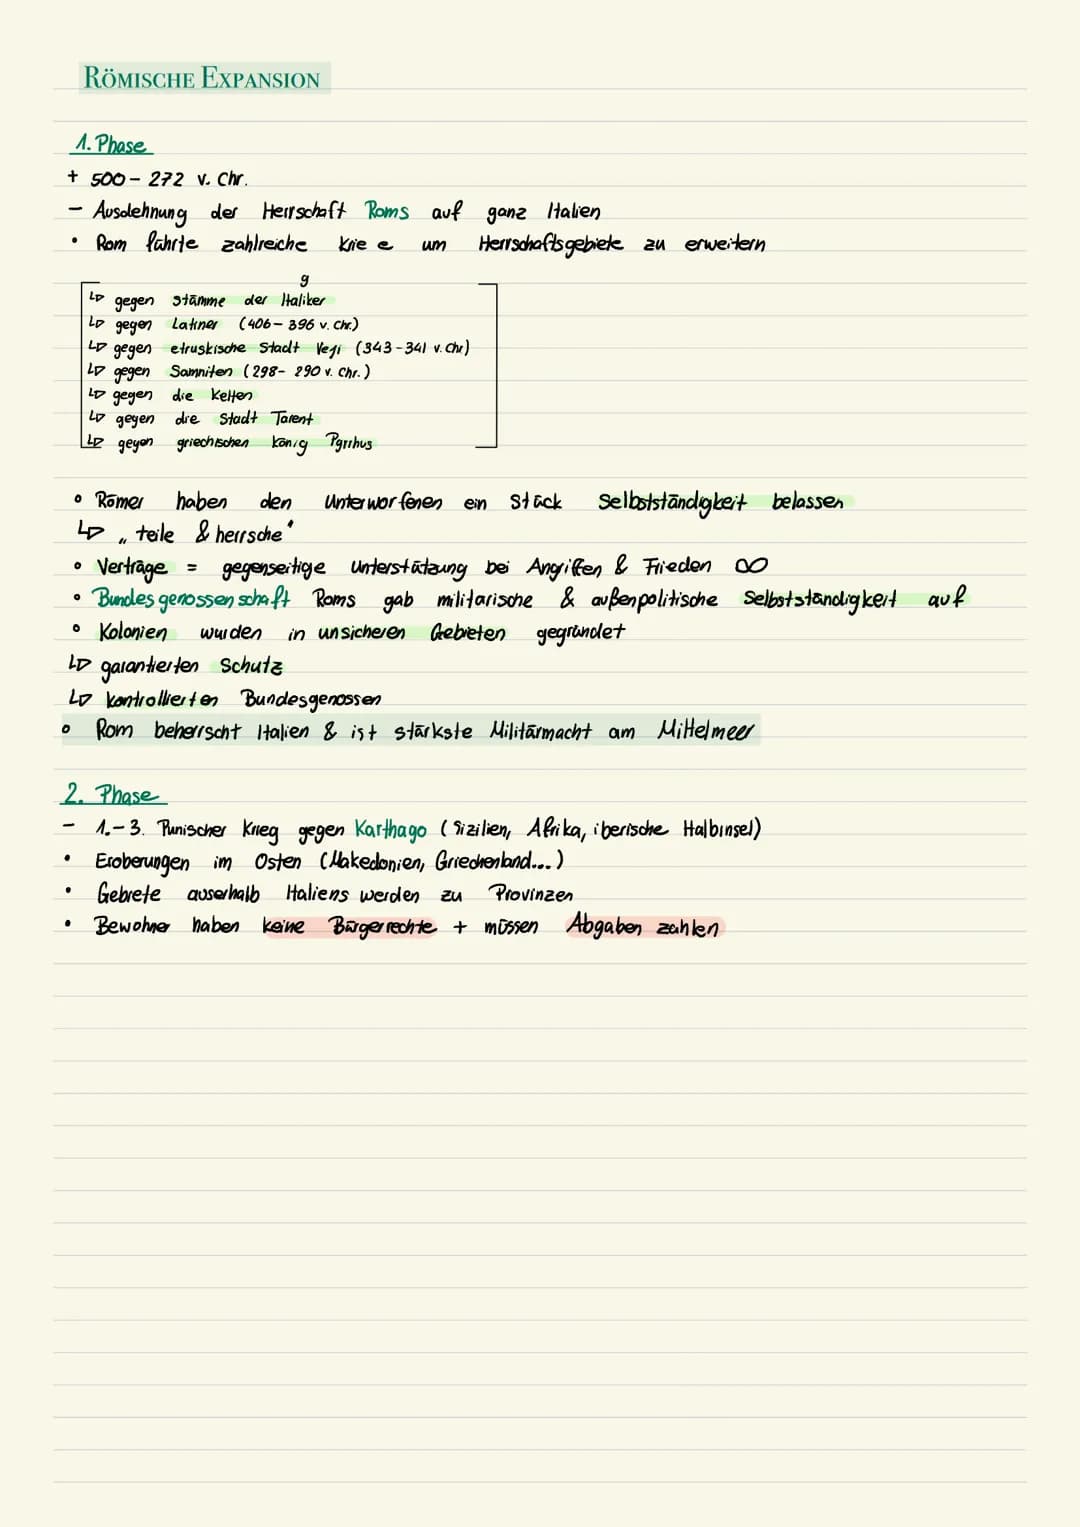 RÖMISCHE EXPANSION
1. Phase
+ 500 - 272 v. Chr.
- Ausdehnung der Herrschaft Roms auf ganz Italien
• Rom führte zahlreiche Krie e um Herrschaftsgebiete zu erweitern
g
↳ gegen Stämme der Italiker
↳ gegen Latiner (406 - 396 v. Chr.)
↳ gegen etruskische Stadt Veji (343 - 341 v. Chr)
↳ gegen Samniten (298 - 290 v. Chr.)
↳ gegen die Kelten
↳ gegen die Stadt Tarent
↳ gegen griechischen König Pyrrhus
• Römer haben den Unterworfenen ein Stück Selbstständigkeit belassen
↳ „teile & herrsche“
• Verträge = gegenseitige Unterstützung bei Angriffen & Frieden ∞
• Bundesgenossenschaft Roms gab militärische & außenpolitische Selbstständigkeit auf
• Kolonien wurden in unsicheren Gebieten gegründet
↳ garantierten Schutz
↳ kontrollierten Bundesgenossen
• Rom beherrscht Italien & ist stärkste Militärmacht am Mittelmeer
2. Phase
- 1. - 3. Punischer Krieg gegen Karthago (Sizilien, Afrika, iberische Halbinsel)
• Eroberungen im Osten (Makedonien, Griechenland...)
• Gebiete auserhalb Italiens werden zu Provinzen
• Bewohner haben keine Bürgerrechte + müssen Abgaben zahlen